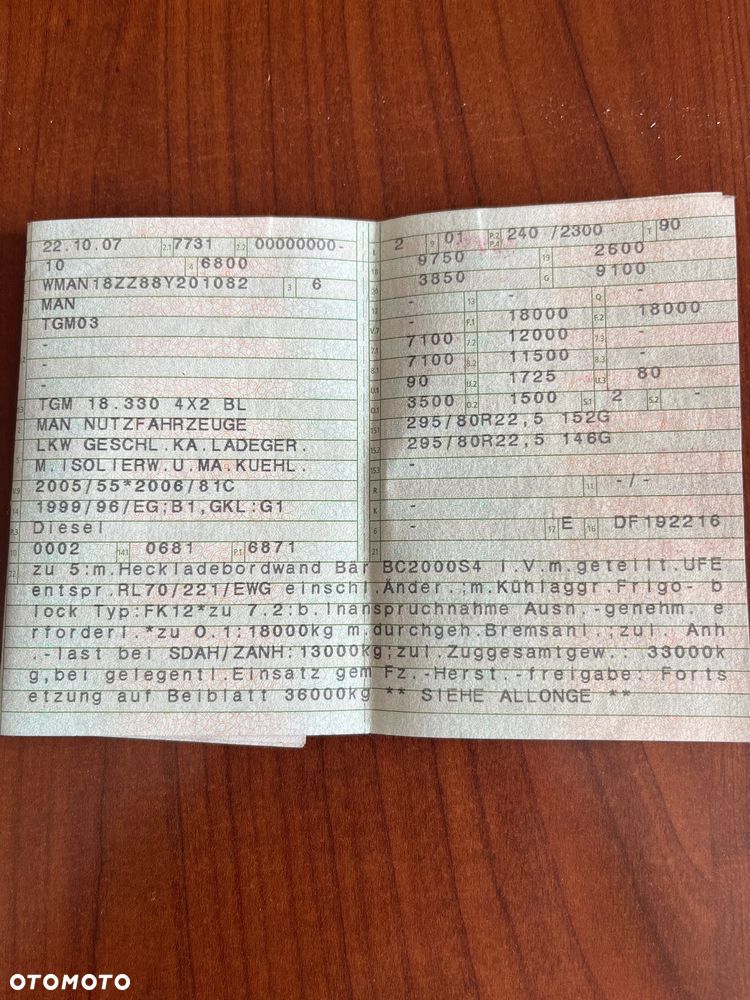 22.10.07 2.1 7731 2.2 00000000-
10 4 6800
WMAN18ZZ88Y201082 3 6
MAN
TGM03
-
-
-
TGM 18.330 4X2 BL
MAN NUTZFAHRZEUGE
LKW GESCHL.KA.LADEGER.
M.ISOLIERW.U.MA.KUEHL.
2005/55*2006/81C
14 1999/96/EG;B1,GKL:G1
Diesel
10 0002 14.1 0681 P.1 6871
L 2 9 01 P.2 P.4 240 /2300 T 90
18 9750 19 2600
20 3850 G 9100
12 - 13 - Q -
V.7 - F.1 18000 F.2 18000
7.1 7100 7.2 12000 7.3 -
8.1 7100 8.2 11500 8.3 -
U.1 90 U.2 1725 U.3 80
O.1 3500 O.2 1500 S.1 2 S.2 -
15.1 295/80R22,5 152G
15.2 295/80R22,5 146G
15.3 -
R - 11 -/-
K -
6 - 17 E 16 DF192216
21
22 zu 5:m.Heckladebordwand Bär BC2000S4 i.V.m.geteilt.UFE
entspr.RL70/221/EWG einschl.Änder.;m.Kühlaggr.Frigo-b
lock Typ:FK12*zu 7.2:b.Inanspruchnahme Ausn.-genehm. e
rforderl.*zu O.1:18000kg m.durchgeh.Bremsanl.;zul. Anh
.-last bei SDAH/ZANH:13000kg;zul.Zuggesamtgew.: 33000k
g,bei gelegentl.Einsatz gem Fz.-Herst.-freigabe: Forts
etzung auf Beiblatt 36000kg ** SIEHE ALLONGE **
OTOMOTO